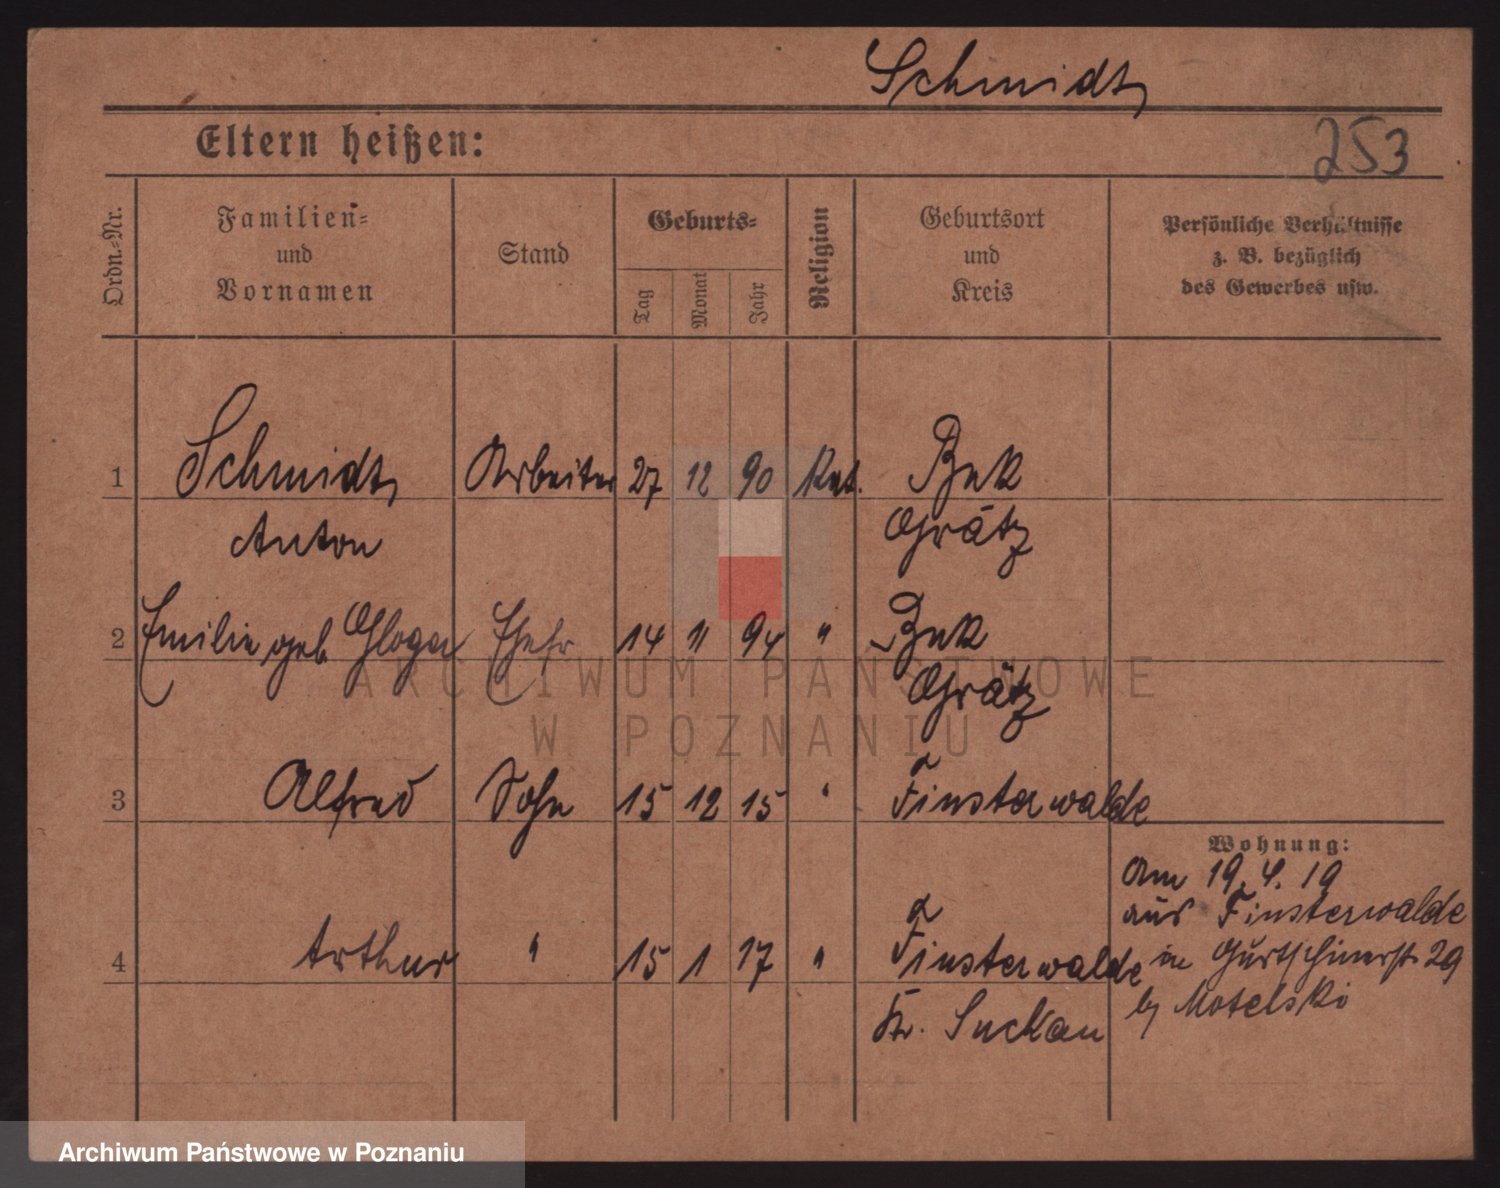 Schmidt
Eltern heißen:
253
Ordn.-Nr.
Familien-
und
Vornamen
Stand
Geburts-
Tag
Monat
Jahr
Religion
Geburtsort
und
Kreis
Persönliche Verhältnisse
z. B. bezüglich
des Gewerbes usw.
1 Schmidt, Arbeiter 27 12 90 Kat. Buk
Anton Grätz
2 Emilie geb. Gloger Ehefr 14 11 94 " Buk
Grätz
3 Alfred Sohn 15 12 15 " Finsterwalde
Wohnung:
Am 19. 4. 19
aus Finsterwalde
in Gurtschinerstr 29
b/ Motelski
4 Arthur " 15 1 17 " Finsterwalde
Kr. Luckau
ARCHIWUM PAŃSTWOWE
W POZNANIU
Archiwum Państwowe w Poznaniu